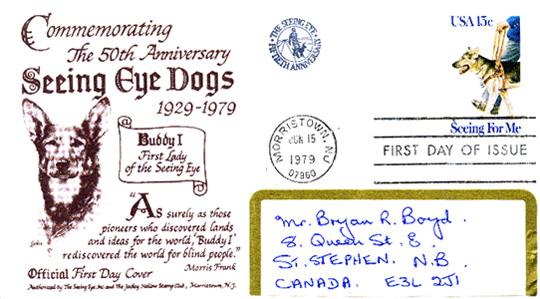 Commemorating
The 50th Anniversary
Seeing Eye Dogs
1929-1979
Buddy I
First Lady
of the Seeing Eye
"As surely as those
pioneers who discovered lands
and ideas for the world, "Buddy I"
rediscovered the world for blind people."
Morris Frank
Official First Day Cover
Authorized by The Seeing Eye Inc and The Jockey Hollow Stamp Club, Morristown, N.J.
THE SEEING EYE
FIFTIETH ANNIVERSARY
USA 15c
Seeing For Me
MORRISTOWN, NJ
JUN 15
1979
07960
FIRST DAY OF ISSUE
Mr. Bryan R. Boyd.
8. Queen St. E.
St. STEPHEN, N.B.
CANADA. E3L 2J1